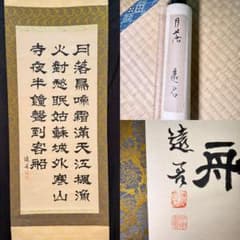 月落烏啼霜滿天江楓漁
火對愁眠姑蘇城外寒山
寺夜半鐘聲到客船
月落
遠